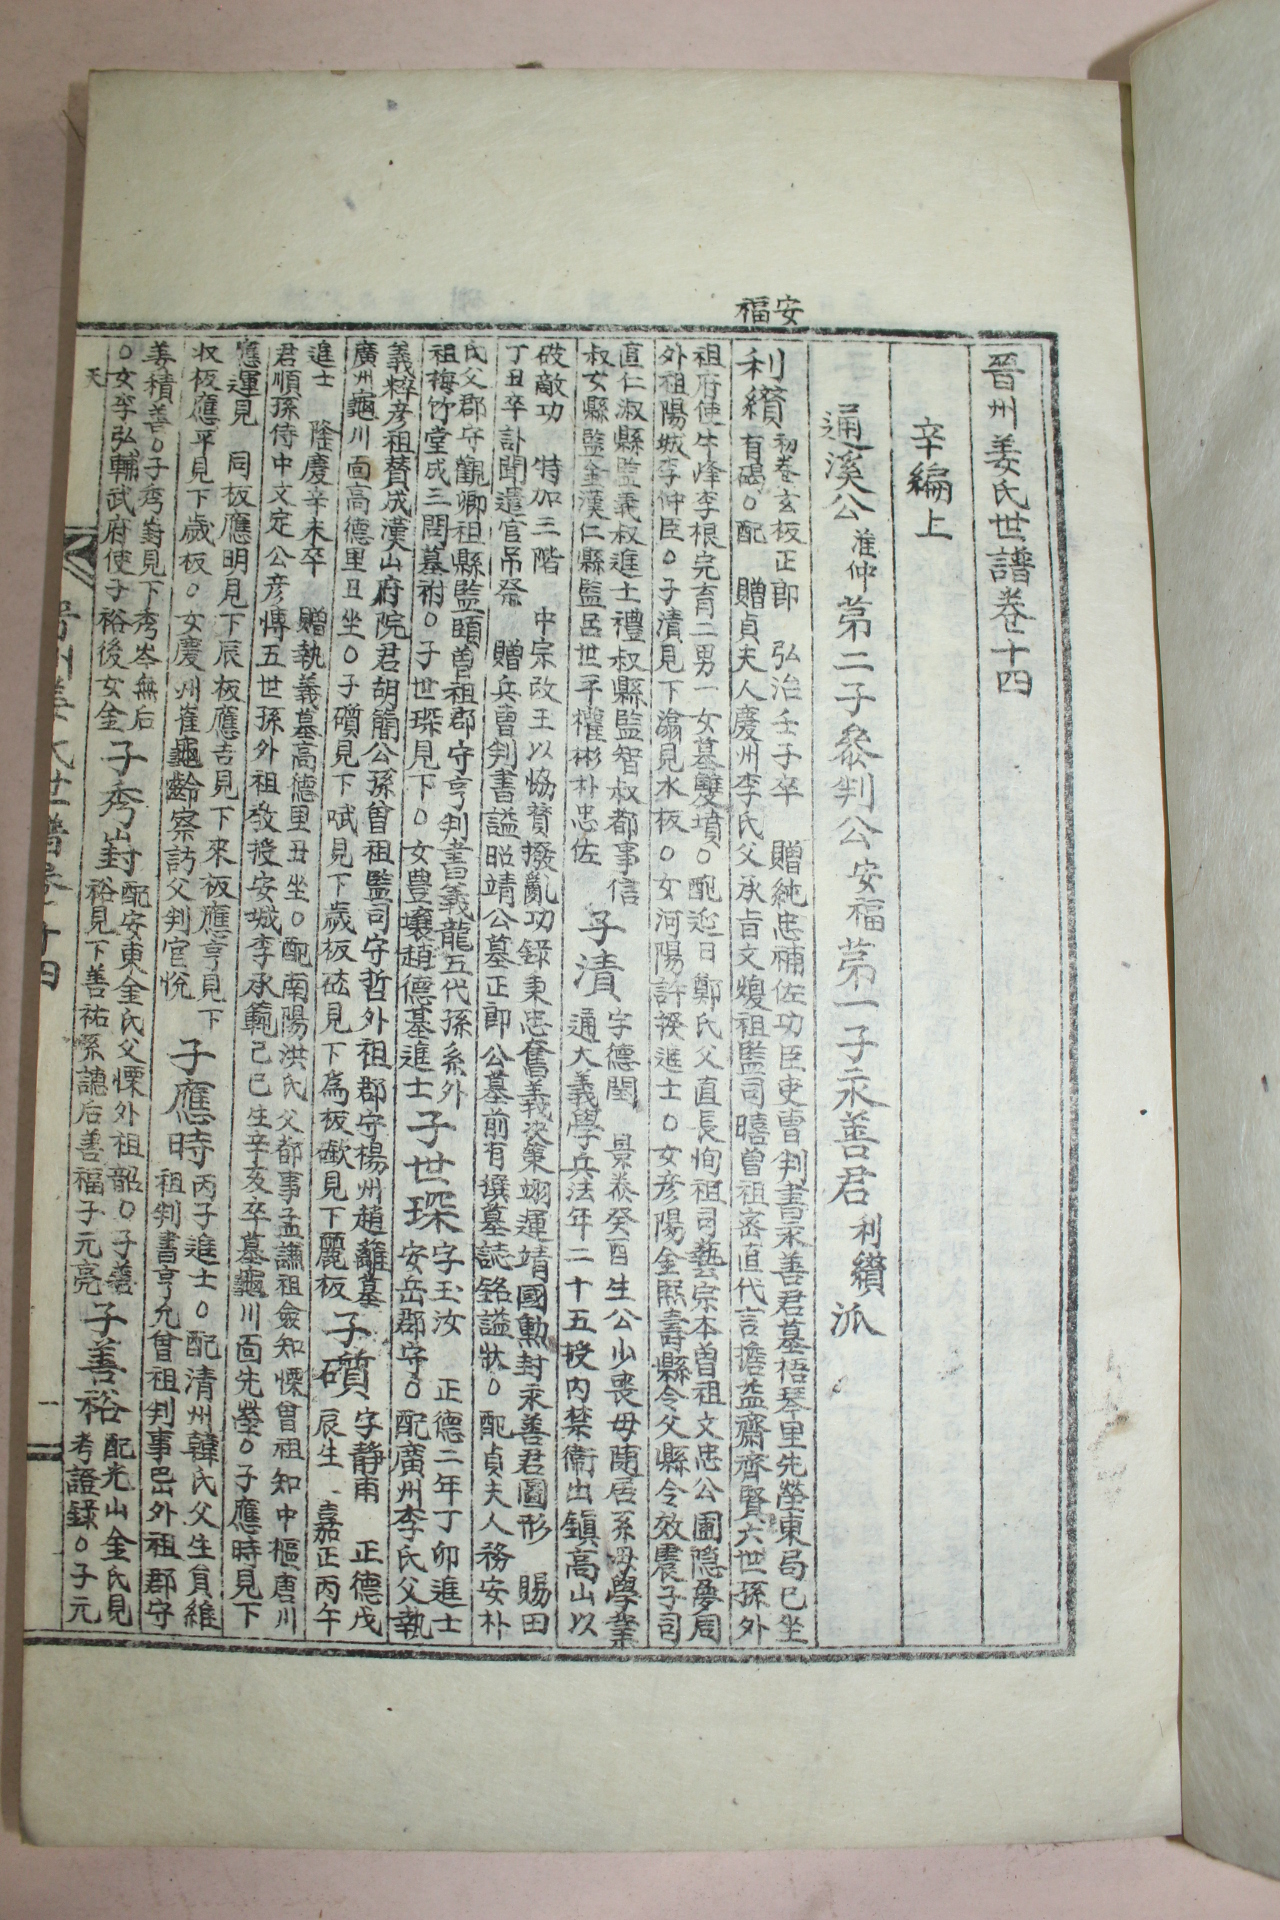 晉州姜氏世譜卷十四
辛編上
通溪公 淮仲 第二子參判公 安福 第一子永善君 利纘 派
安福
利纘
初卷玄板正郎 弘治壬子卒 贈純忠補佐功臣吏曹判書永善君墓梧琴里先塋東局巳坐
有碣○配 贈貞夫人慶州李氏父承旨文煥祖監司暿曾祖密直代言擔益齋齊賢六世孫外
祖府使牛峰李根完育二男一女墓雙墳○配迎日鄭氏父直長恂祖司藝宗本曾祖文忠公圃隱夢周
外祖陽城李仲臣○子漬見下滃見水板○女河陽許揆進士○女彦陽金熙壽縣令父縣令效震子司
直仁淑縣監義叔進士禮叔縣監智叔都事信
叔女縣監金漢仁縣監呂世平權彬朴忠佐
子漬
字德閏 景泰癸酉生公少喪母隨居孫母學業
通大義學兵法年二十五授內禁衛出鎮高山以
破敵功 特加三階 中宗改王以協贊撥亂功錄秉忠奮義決策翊運靖國勳封永善君圖形 賜田
丁丑卒訃聞遣官吊祭 贈兵曹判書謚昭靖公墓正郎公墓前有撰墓誌銘謚狀○配貞夫人務安朴
氏父郡守觀卿祖縣監頤曾祖郡守亨判書義龍五代孫系外
祖梅竹堂成三問墓祔○子世琛見下○女豊壤趙德基進士
子世琛
字玉汝 正德二年丁卯進士
安岳郡守○配廣州李氏父執
義粹彦祖贊成漢山府院君胡簡公孫曾祖監司守哲外祖郡守楊州趙蘿墓
廣州龜川面高德里丑坐○子礩見下斌見下歲板砝見下爲板歑見下麗板
子礩
字靜甫 正德戊
辰生 嘉正丙午
進士 隆慶辛未卒 贈執義墓高德里丑坐○配南陽洪氏父都事孟謙祖僉知慄曾祖知中樞唐川
君順孫侍中文定公彦博五世孫外祖敎授安城李承範己巳生辛亥卒墓龜川面先塋○子應時見下
應運見 同板應明見下辰板應吉見下來板應亨見下
收板應平見下歲板○女慶州崔龜齡察訪父判官悅
子應時
丙子進士○配淸州韓氏父生員維
祖判書亨允曾祖判事巴外祖郡守
姜積善○子秀崶見下秀岑無后
○女李弘輔武府使子裕後女金
子秀崶
配安東金氏父慄外祖韶○子善
裕見下善祐系讜后善福子元亮
子善裕
配光山金氏見
考證錄○子元
天
晉州姜氏世譜卷十四
一